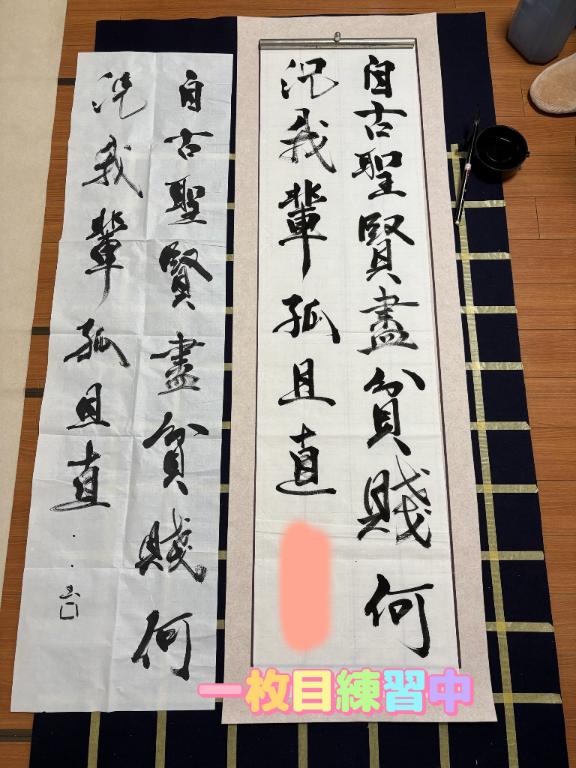 自古聖賢盡貧賤何
況我輩孤且直
自古聖賢盡貧賤何
況我輩孤且直
一枚目練習中